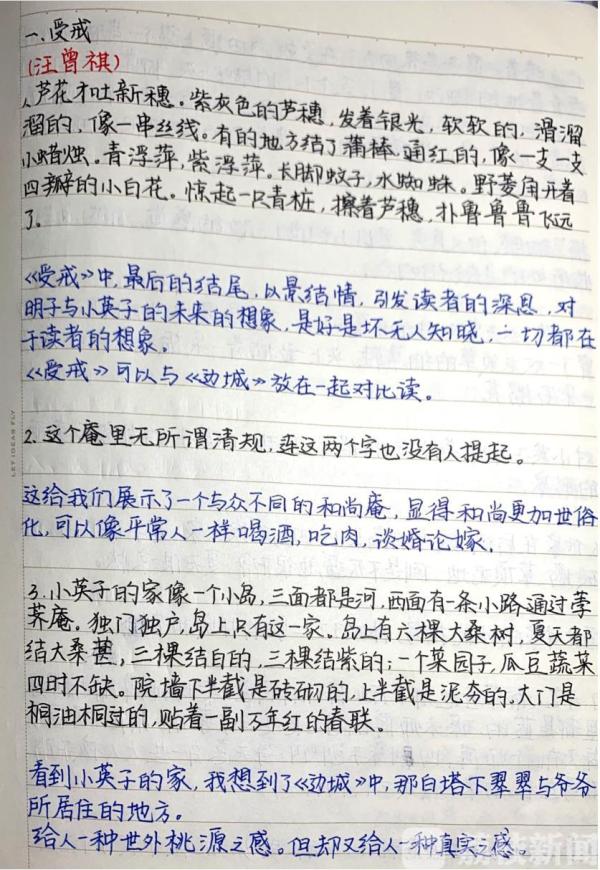 一.受戒
(汪曾祺)
1.芦花才吐新穗。紫灰色的芦穗,发着银光,软软的,滑溜
溜的,像一串丝线。有的地方结了蒲棒,通红的,像一支一支
小蜡烛。青浮萍,紫浮萍。长脚蚊子,水蜘蛛。野菱角开着
四瓣的小白花。惊起一只青桩,擦着芦穗,扑鲁鲁鲁飞远
了。
《受戒》中,最后的结尾,以景结情,引发读者的深思,对
明子与小英子的未来的想象,是好是坏无人知晓,一切都在
于读者的想象。
《受戒》可以与《边城》放在一起对比读。
2.这个庵里无所谓清规,连这两个字也没有人提起。
这给我们展示了一个与众不同的和尚庵,显得和尚更加世俗
化,可以像平常人一样喝酒,吃肉,谈婚论嫁.
3.小英子的家像一个小岛,三面都是河,西面有一条小路通过荸
荠庵。独门独户,岛上只有这一家。岛上有六棵大桑树,夏天都
结大桑葚,三棵结白的,三棵结紫的;一个菜园子,瓜豆蔬菜
四时不缺。院墙下半截是砖砌的,上半截是泥夯的。大门是
桐油桐过的,贴着一副万年红的春联。
看到小英子的家,我想到了《边城》中,那白塔下翠翠与爷爷
所居住的地方。
给人一种世外桃源之感。但却又给人一种真实之感。
LET IDEAS FLY
荔枝新闻